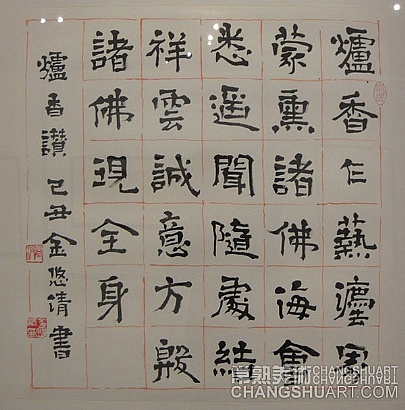 爐香乍爇灋界
蒙熏諸佛海會
悉遙聞隨處結
祥雲誠意方殷
諸佛現全身
爐香讚 己丑金悠倩書
常熟美術 CHANGSHUART
CHANGSHUART.COM